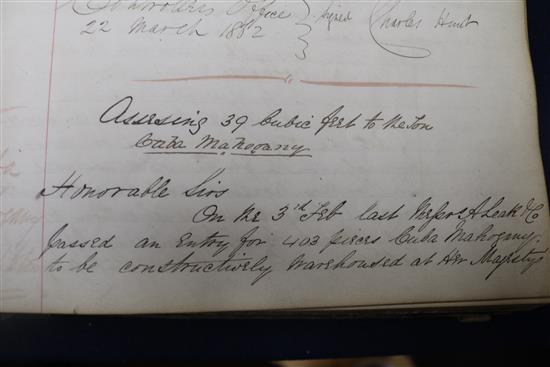 Controlers Office } signed Charles Hunt
22 March 1882
Assessing 39 Cubic feet to the Ton
Cuba Mahogany
Honorable Sirs
On the 3rd Feb last Messrs A Leath & Co
passed an Entry for 403 pieces Cuba Mahogany.
to be constructively Warehoused at Her Majestys